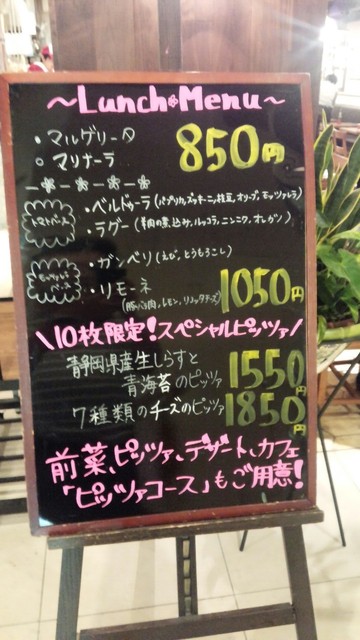 〜Lunch Menu〜
・マルゲリータ
○マリナーラ
850円
トマトベース
・ベルドゥーラ(パプリカ,ズッキーニ,枝豆,オリーブ,モッツァレラ)
・ラグー(羊肉の煮込み,ルッコラ,ニンニク,オレガノ)
モッツァレラベース
・ガンベリ(えび,とうもろこし)
・リモーネ
(豚バラ肉,レモン,リコッタチーズ)
1050円
\10枚限定!スペシャルピッツァ/
静岡県産生しらすと
青海苔のピッツァ
1550円
7種類のチーズのピッツァ
1850円
前菜、ピッツァ、デザート、カフェ
「ピッツァコース」もご用意!